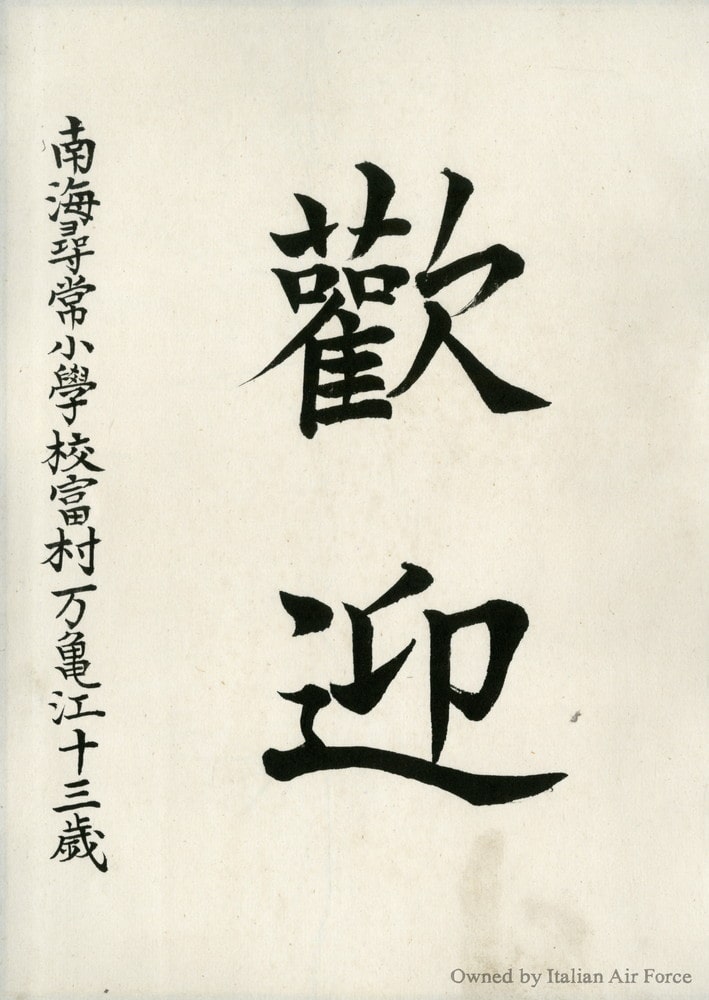 歡迎
南海尋常小學校富村万亀江十三歲
Owned by Italian Air Force